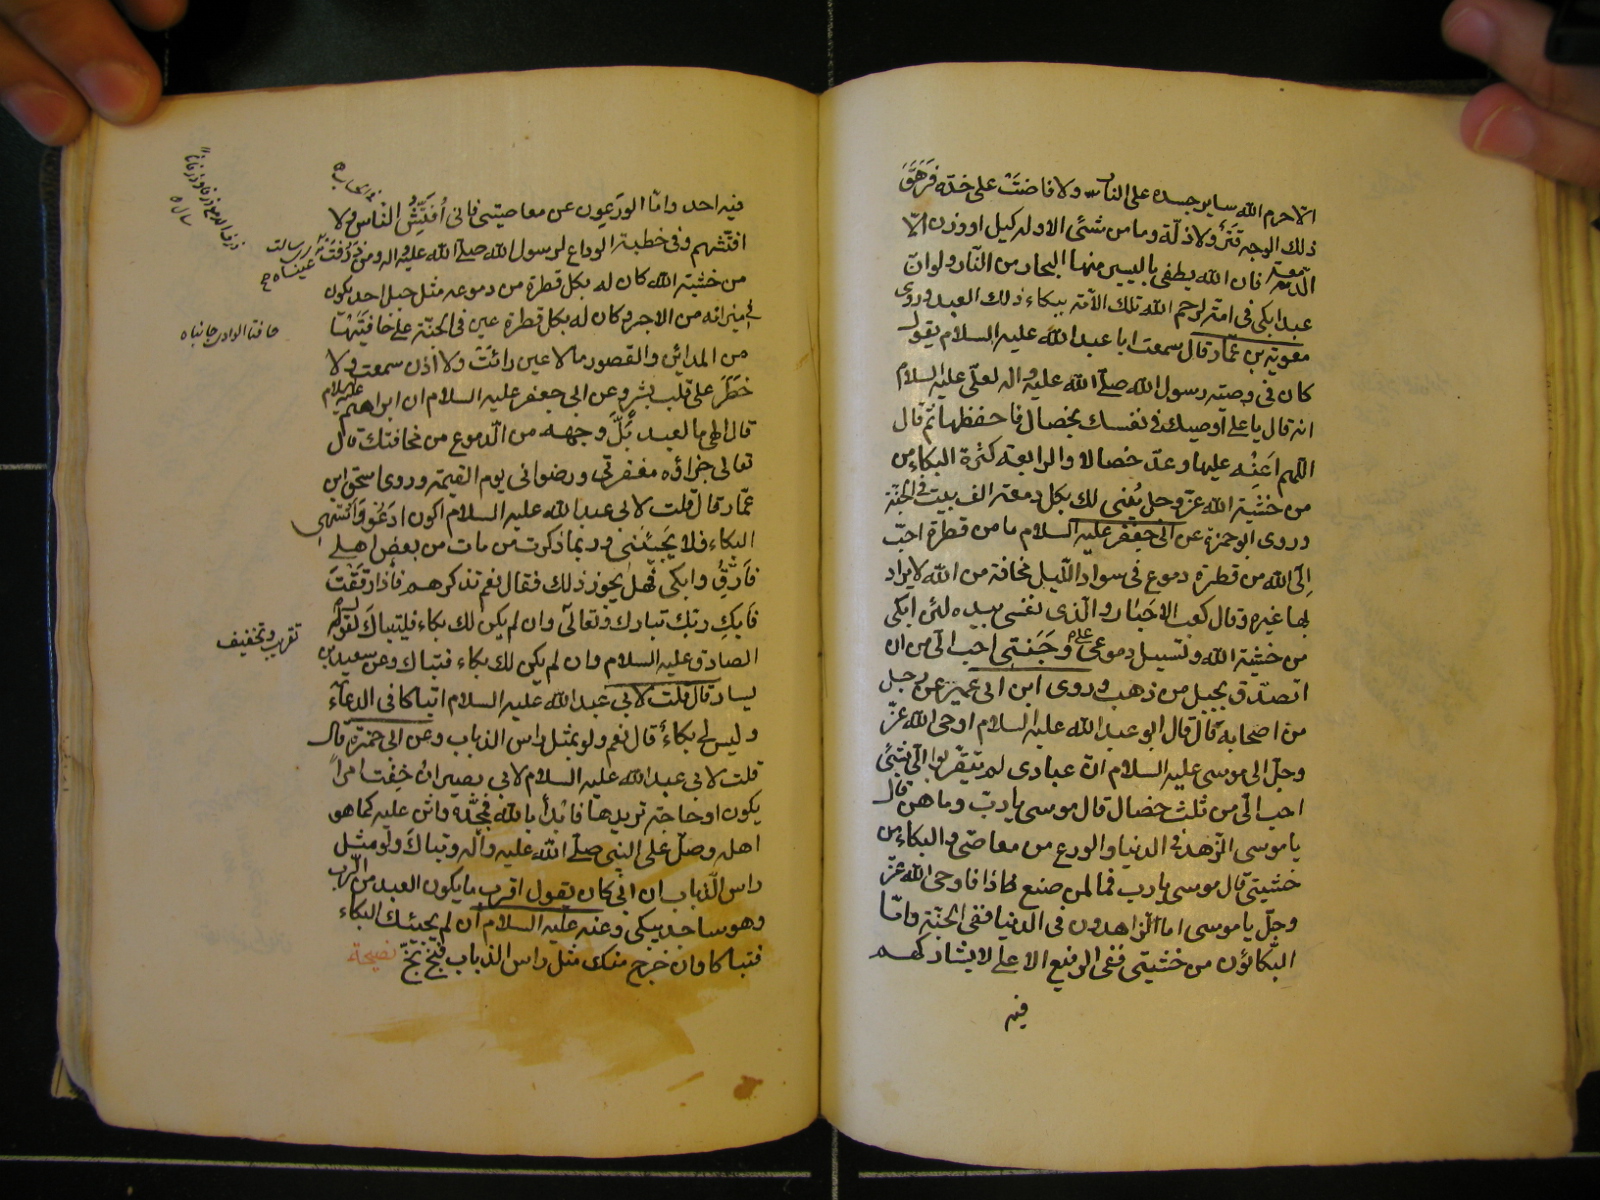 الا حرم الله ساير جسده على النار ولا فاضت على خده فَرَهَقَ
ذلك الوجه قَتَرٌ ولا ذلّة وما من شئ الا وله كيل او وزن الّا
الدمعة فان الله يطفى باليسير منها البحار من النّار ولو انّ
عبدا بكى فى امّة لرحم الله تلك الأمّة ببكاء ذلك العبد وروى
معوية بن عمّار قال سمعت ابا عبد الله عليه السلام يقول
كان فى وصيّة رسول الله صلّى الله عليه واله لعلّى عليه السلام
انه قال يا على اوصيك فى نفسك بخصال فاحفظها ثمّ قال
اللّهم اَعِنْه عليها وعدّ خصالا والرابعة كثرة البكاء من
من خشية الله عزّ وجل يُبنى لك بكل دمعة الف بيت فى الجنّة
وروى ابو حمزة عن ابى جعفر عليه السلام ما من قطرة احبّ
اِلَى الله من قطرة دموع فى سواد اللّيل مخافة من الله لا يراد
بها غيره وقال كعب الاحبار والّذى نفسى بيده لئن ابكى
من خشية الله وتسيل دموعى على وَجَنَتى احب الىّ من ان
اتصدّق بجبل من ذهب وروى ابن ابى عمير عن رجل
من اصحابه قال قال ابو عبد الله عليه السلام اوحى الله عزّ
وجلّ الى موسى عليه السلام انّ عبادى لم يتقرّبوا الىّ بشئ
احب الىّ من ثلث خصال قال موسى يا ربّ وما هن قال
يا موسى الزّهد فى الدنيا والورع من معاصىّ والبكاء من
خشيتى قال موسى يا رب فما لمن صنع ذا فاوحى الله عزّ
وجلّ يا موسى اما الزاهدون فى الدّنيا ففى الجنّة وامّا
البكّاؤن من خشيتى ففى الرفيع الاعلى لا يشاركهم
فيه
فيه احد وامّا الورعون عن معاصيتى فانى اُفَتِّشُ النّاس ولا
افتّشهم وفى خطبة الوداع لرسول الله صلّى الله عليه واله ومن ذَرَفَتْ
عيناه
من خشية الله كان له بكل قطرة من دموعه مثل جبل احد يكون
فى ميزانه من الاجر وكان له بكل قطرة عين فى الجنّة على حافَتَيْها
حافتا الوادى جانباه
من المدائن والقصور مالا عين رائتْ ولا اذن سمعت ولا
خَطَرَ على قلب بشر وعن ابى جعفر عليه السلام ان ابراهيم عليه السلام
قال الهى ما لعبد بُلَّ وجهه من الّدموع من مخافتك قال
تعالى جزاؤه مغفرتى ورضوانى يوم القيمة وروى اسحق ابن
عمّار قال قلت لابى عبد الله عليه السلام اكون ادعُو وَاَشتهى
البكاء فلا يَجيئُنى وربما ذكرت من مات من بعض اهلى
فاَرِقُّ وابكى فهل يجوز ذلك فقال نعم تذكرهم فاذا رَقَقْتَ
فابكِ ربّك تبارك وتعالى وان لم يكن لك بكاء فليتباكَ لقول
الصادق عليه السلام وان لم يكن لك بكاء فتباك وعن سعيد بن
يسار قال قلت لابى عبد الله عليه السلام اتباكا فى الدعآء
وليس لى بكاءٌ قال نعم ولو مثل راس الذباب وعن ابى حمزة قال
قلت لابى عبد الله عليه السلام لابى بصير انْ خِفتَ امراً
يكون او حاجة تريدها فابْدَأ بالله فمجّده واثن عليه كما هو
اهله وصلّ على النبى صلّى الله عليه وآله وتباكَ ولو مثل
راس الّذباب ان ابى كان يقول اقرب ما يكون العبد من الرّب
وهو ساجد يبكى وعنه عليه السلام ان لم يجئك البكاء
فتباكا وان خرج منك مثل راس الذباب فبَخٍّ بَخٍّ نصيحة